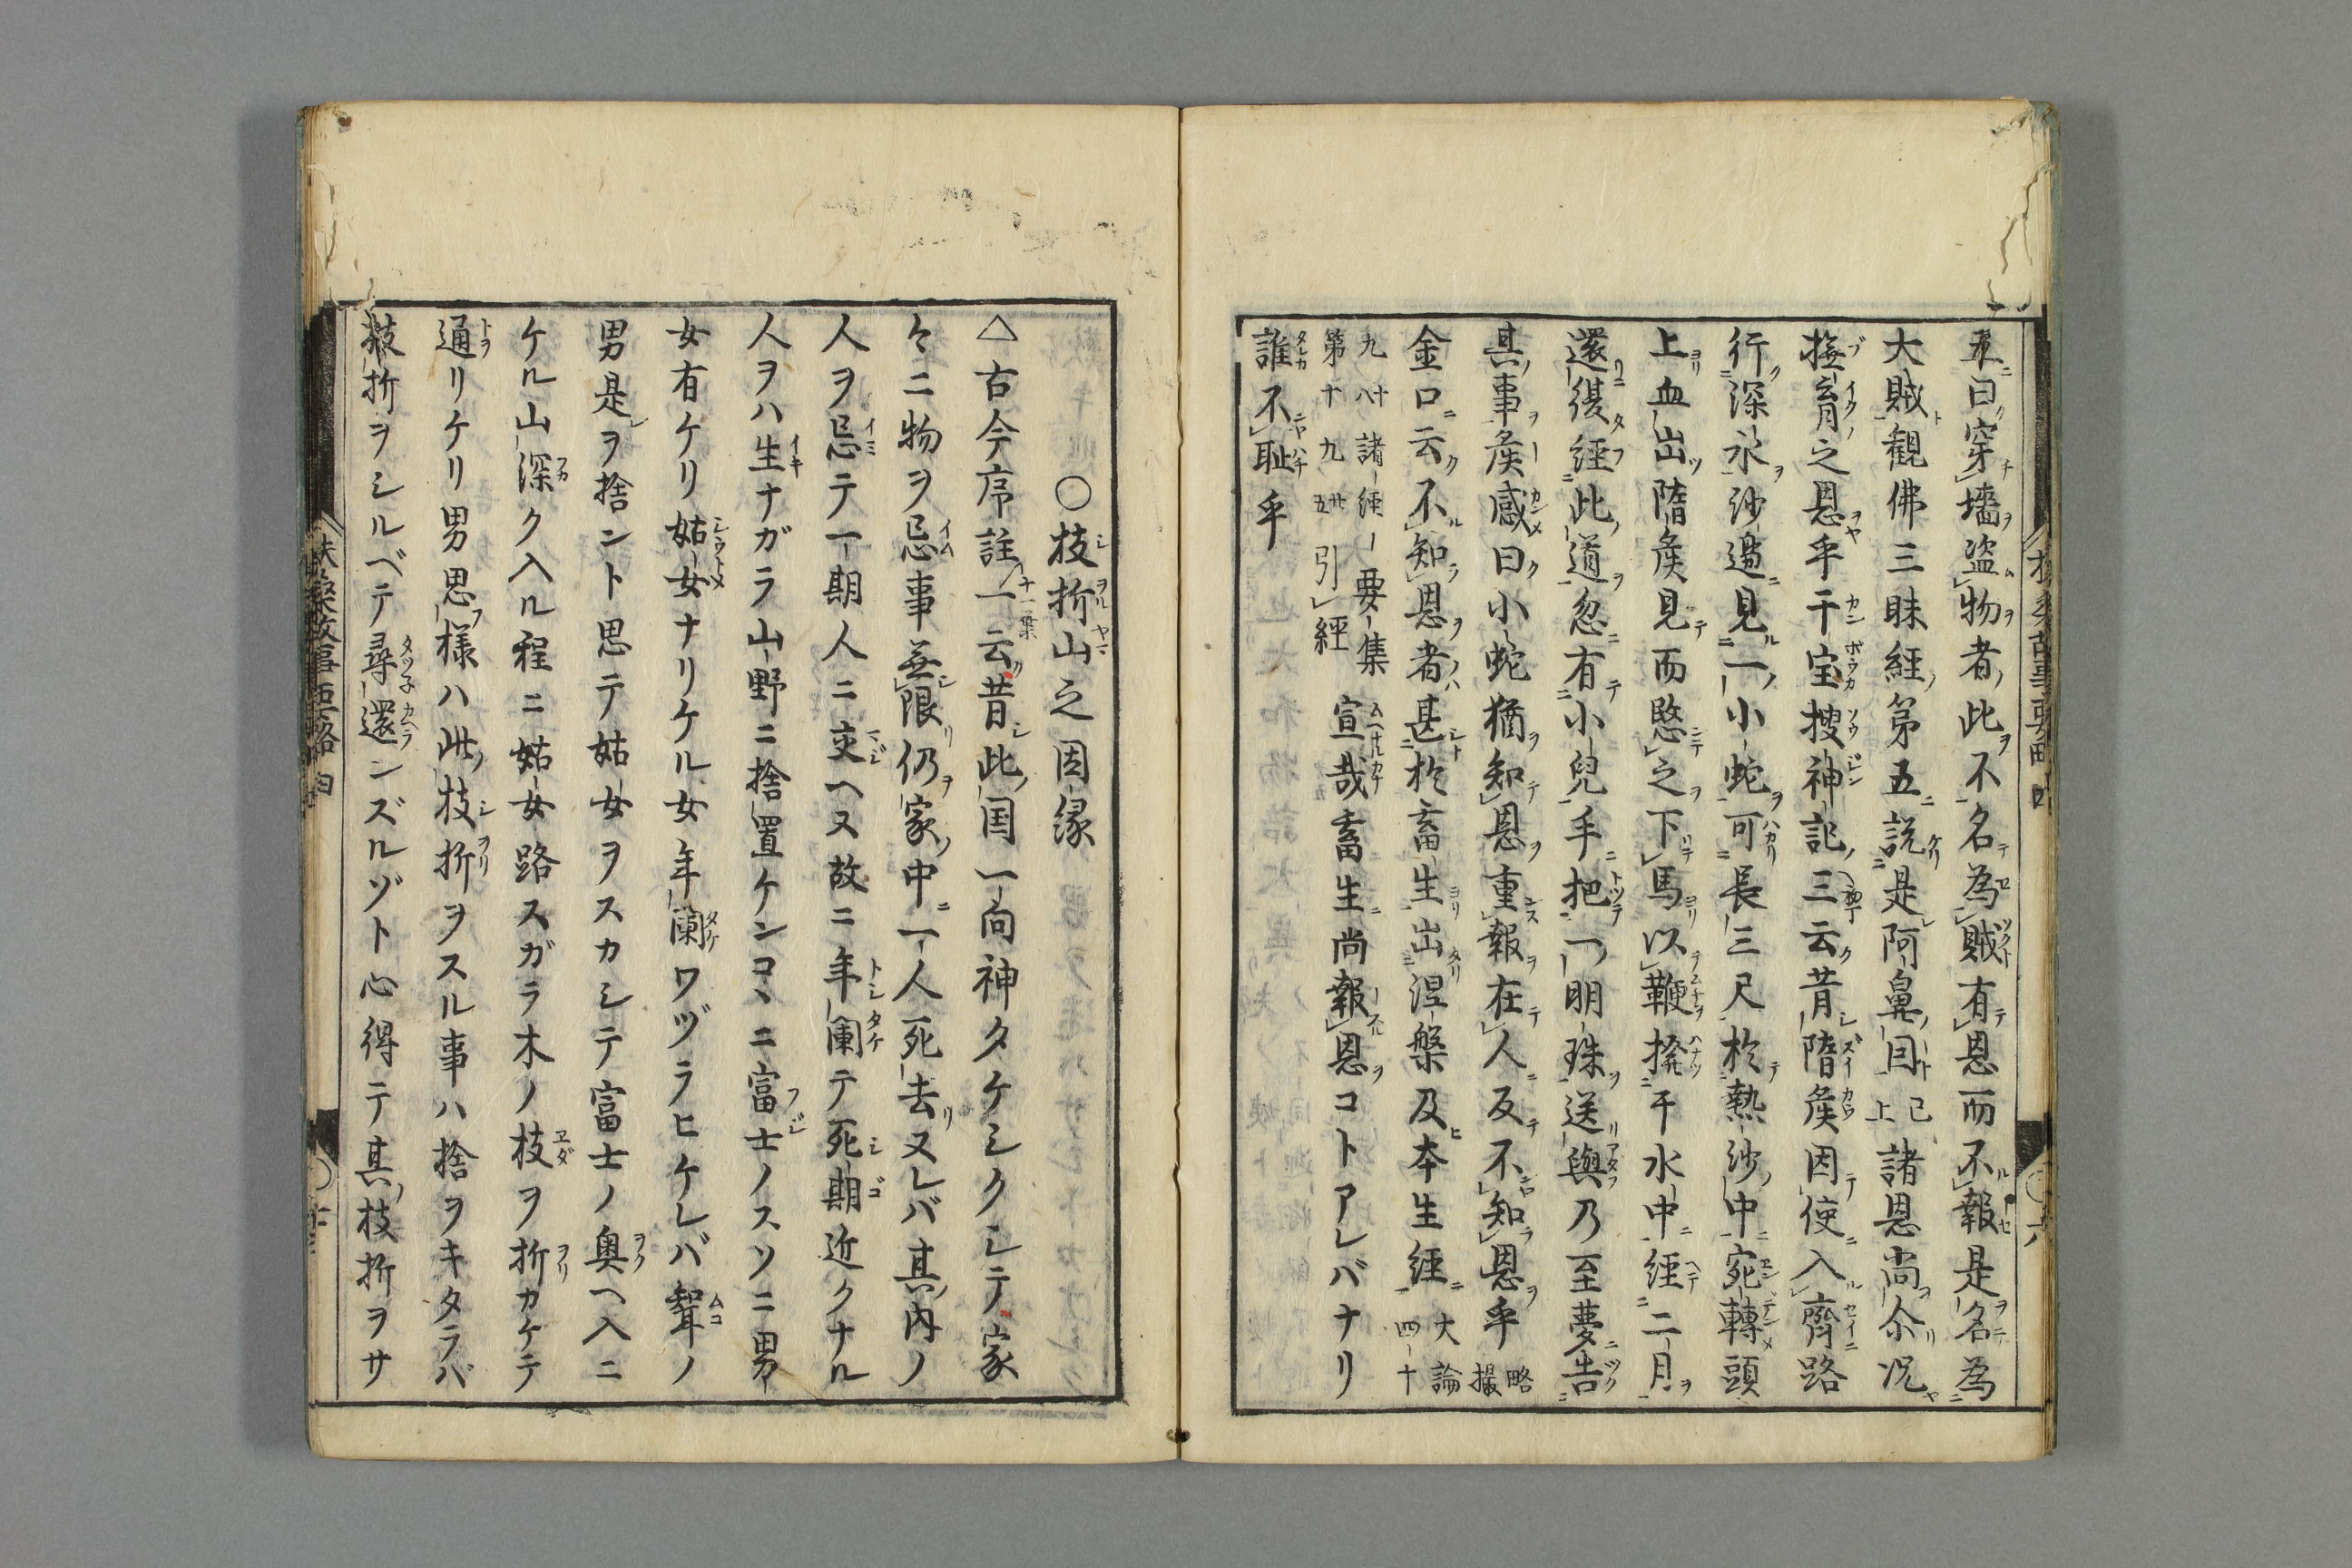 曰穿墻盗物者此不名為賊有恩而不報是名為
大賊観佛三昧経第五説是阿鼻因已上諸恩尚尒况
撫育之恩乎干宝捜神記三云昔隋侯因使入齊路
行深水沙邉見一小蛇可長三尺於熱沙中宛轉頭
上血出隋侯見而愍之下馬以鞭撥干水中経二月
還復経此道忽有小兒手把一明珠送與乃至夢告
其事侯感曰小蛇猶知恩重報在人反不知恩乎略撮
金口云不知恩者甚於畜生出涅槃及本生経大論四十
九八十諸経要集第十九廿五引経宣哉畜生尚報恩コトアレバナリ
誰不耻乎
〇枝折山之因縁
△古今序註一云昔此国一向神タケシクシテ家
々ニ物ヲ忌事無限仍家中一人死去又レバ其内ノ
人ヲ忌テ一期人ニ交ヘヌ故ニ年闌テ死期近クナル
人ヲハ生ナガラ山野ニ捨置ケンコヽニ富士ノスソニ男
女有ケリ姑女ナリケル女年闌ワヅラヒケレバ聟ノ
男是ヲ捨ント思テ姑女ヲスカシテ富士ノ奥ヘ入ニ
ケル山深ク入ル程ニ姑女路スガラ木ノ枝ヲ折カケテ
通リケリ男思様ハ此枝折ヲスル事ハ捨ヲキタラバ
枝折ヲシルベテ尋還ンズルゾト心得テ其枝折ヲサ